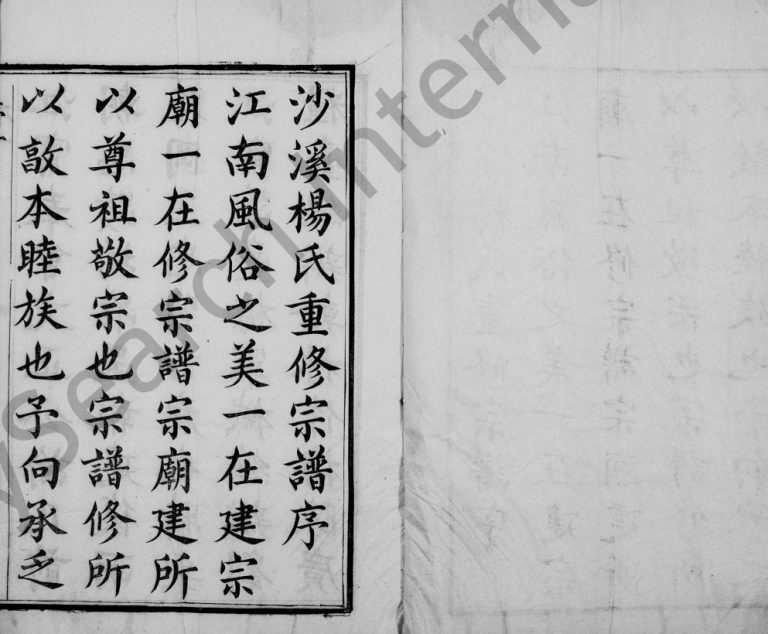 沙溪楊氏重修宗譜序
江南風俗之美一在建宗
廟一在修宗譜宗廟建所
以尊祖敬宗也宗譜修所
以敦本睦族也予向承乏